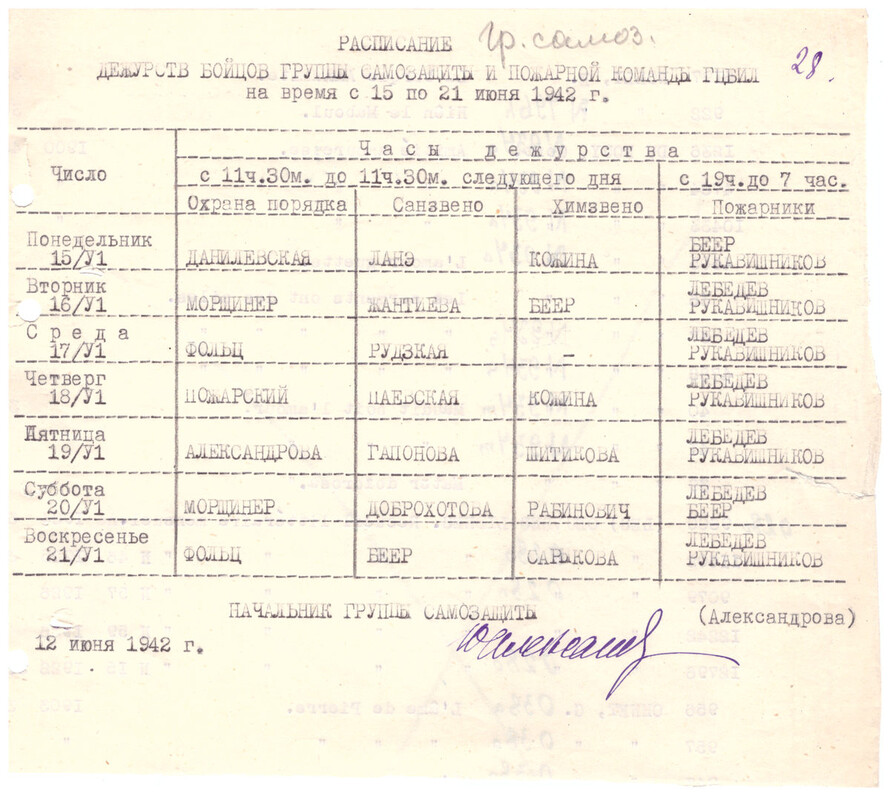 РАСПИСАНИЕ гр. самоз.
ДЕЖУРСТВ БОЙЦОВ ГРУППЫ САМОЗАЩИТЫ И ПОЖАРНОЙ КОМАНДЫ ГЦБИЛ 28.
на время с 15 по 21 июня 1942 г.
Число Часы дежурства
с 11ч.30м. до 11ч.30м. следующего дня с 19ч.до 7 час.
Охрана порядка Санзвено Химзвено Пожарники
Понедельник БЕЕР
15/У1 ДАНИЛЕВСКАЯ ЛАНЭ КОЖИНА РУКАВИШНИКОВ
Вторник ЛЕБЕДЕВ
16/У1 МОРЩИНЕР ЖАНТИЕВА БЕЕР РУКАВИШНИКОВ
Среда ЛЕБЕДЕВ
17/У1 ФОЛЬЦ РУДЗКАЯ – РУКАВИШНИКОВ
Четверг ЛЕБЕДЕВ
18/У1 ПОЖАРСКИЙ ПАЕВСКАЯ КОЖИНА РУКАВИШНИКОВ
Пятница ЛЕБЕДЕВ
19/У1 АЛЕКСАНДРОВА ГАПОНОВА ШИТИКОВА РУКАВИШНИКОВ
Суббота ЛЕБЕДЕВ
20/У1 МОРЩИНЕР ДОБРОХОТОВА РАБИНОВИЧ БЕЕР
Воскресенье ЛЕБЕДЕВ
21/У1 ФОЛЬЦ БЕЕР САРЫКОВА РУКАВИШНИКОВ
НАЧАЛЬНИК ГРУППЫ САМОЗАЩИТЫ (Александрова)
12 июня 1942 г.